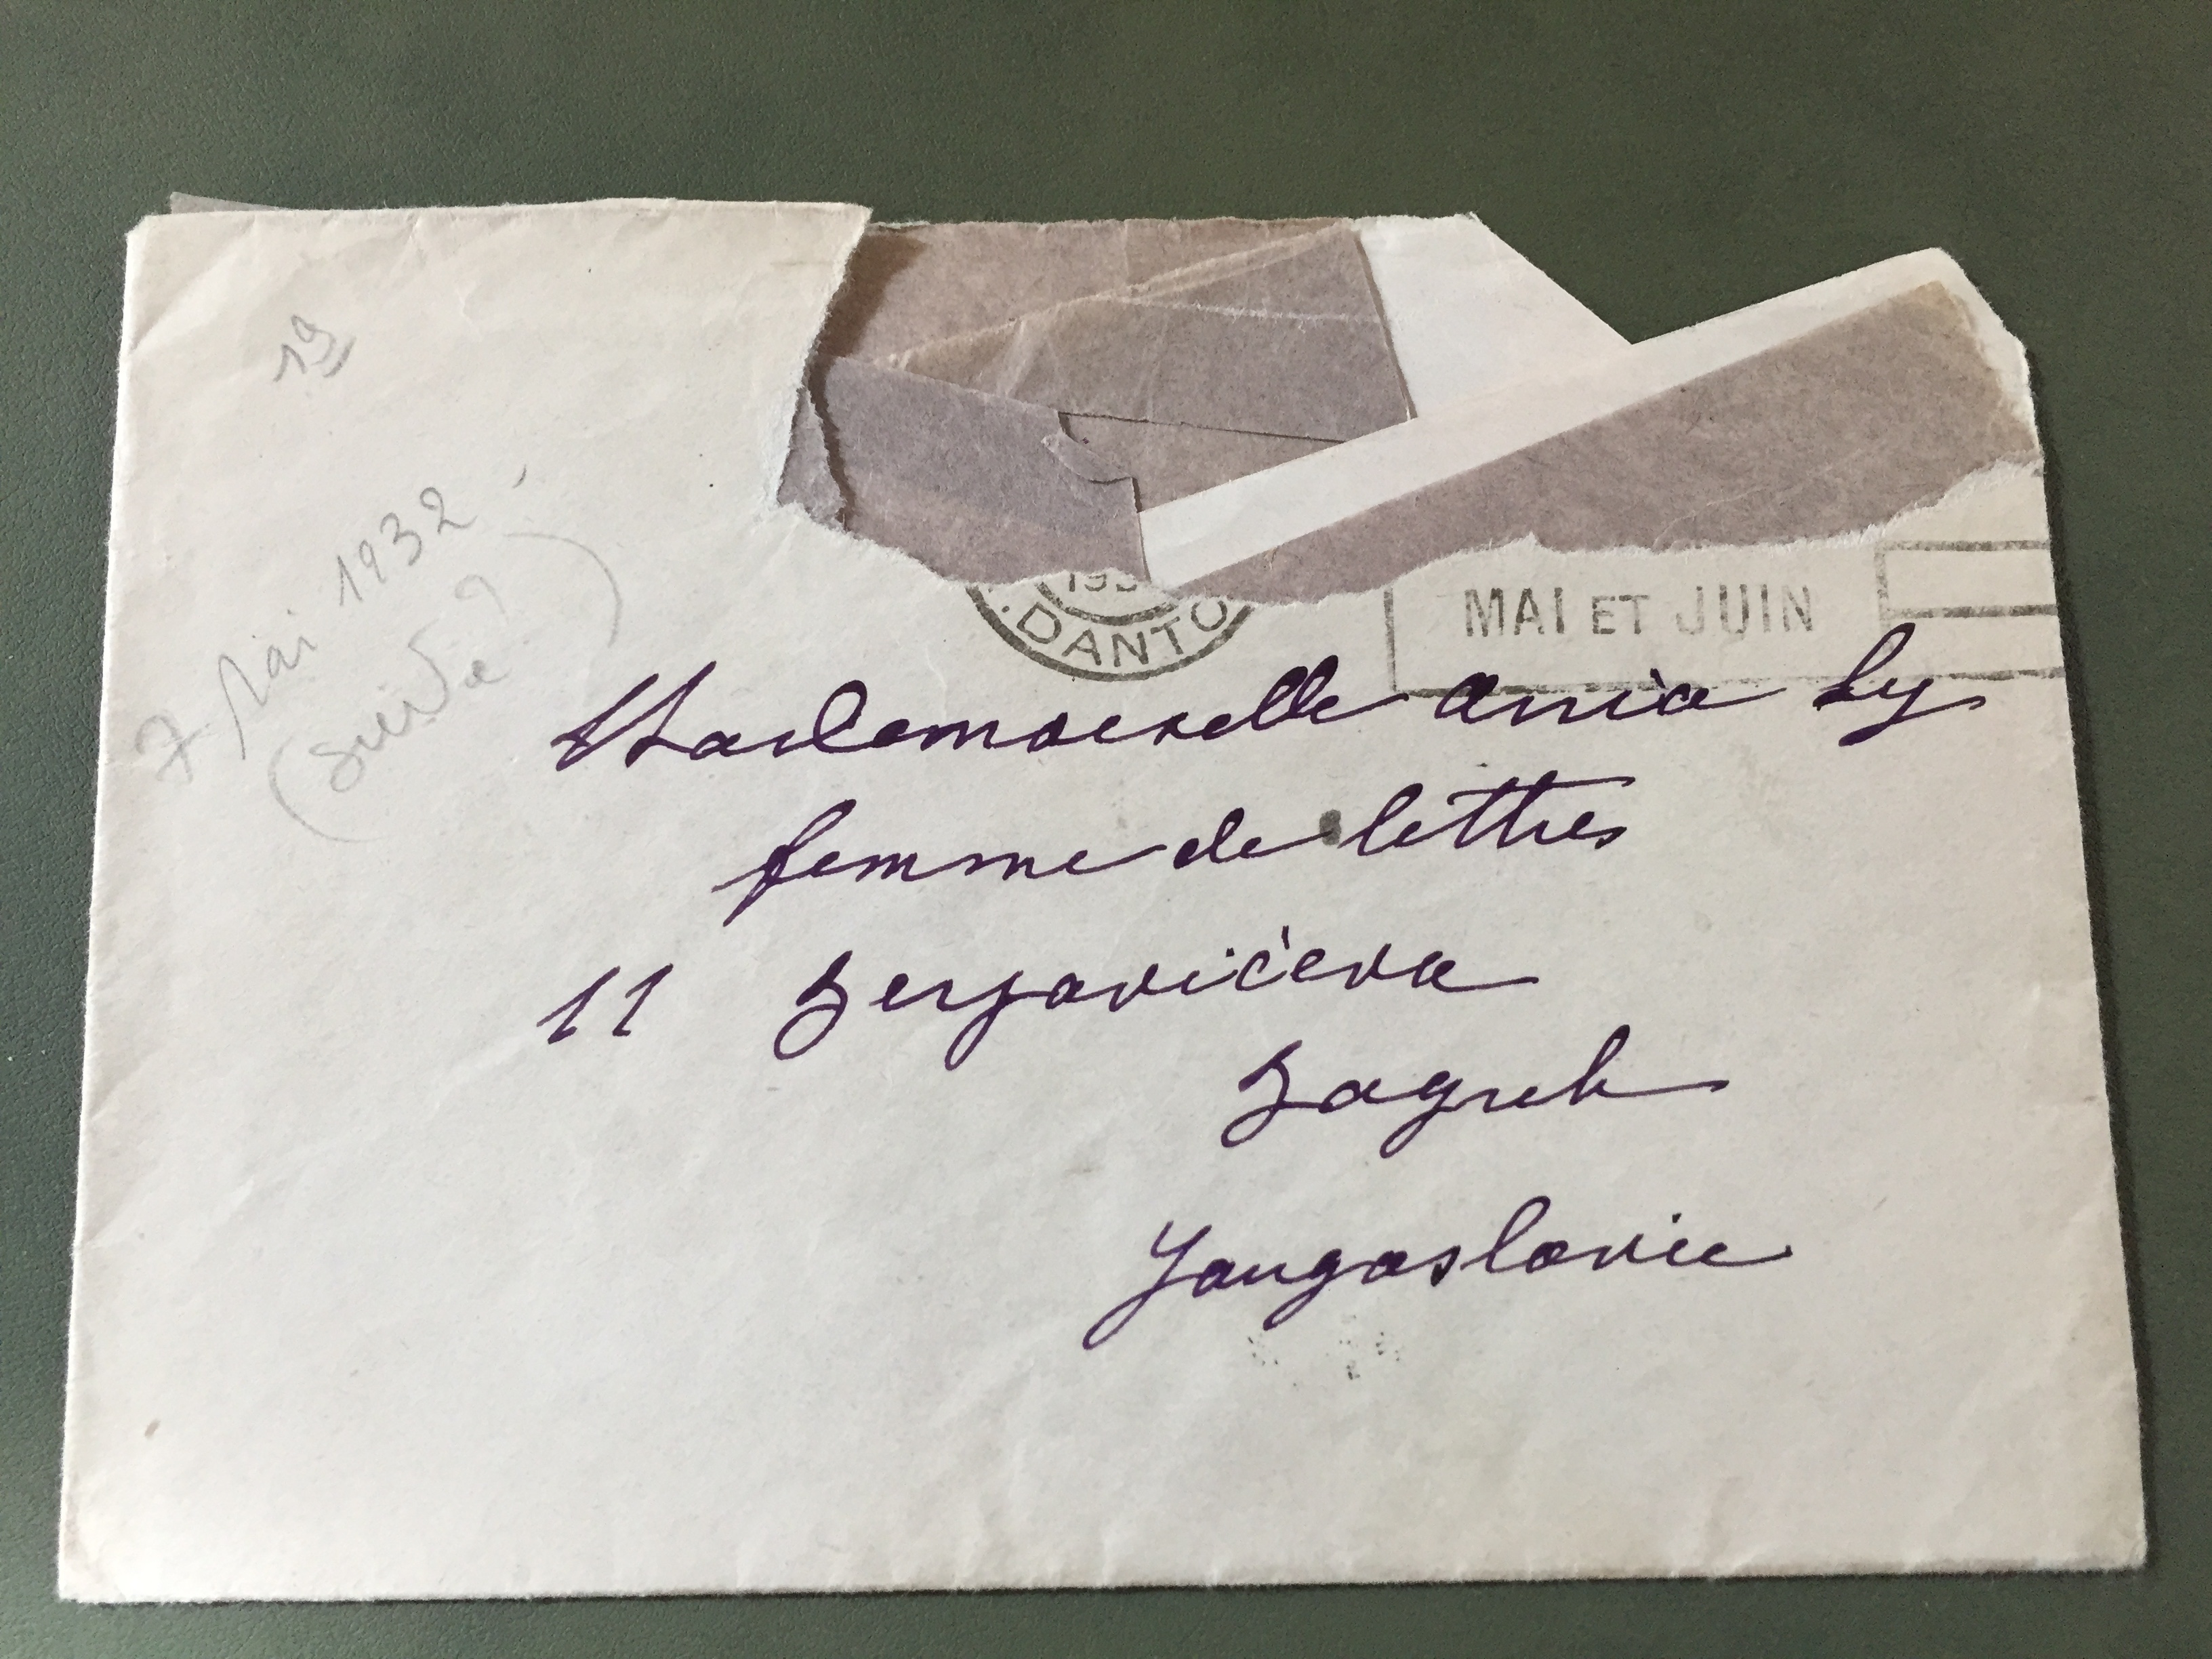 19
7 Mai 1932
(suite ?)
193
.DANTO
MAI ET JUIN
Mademoiselle Annia Ly
femme de lettres
11 Berjavićeva
Zagreb
Yougoslavie